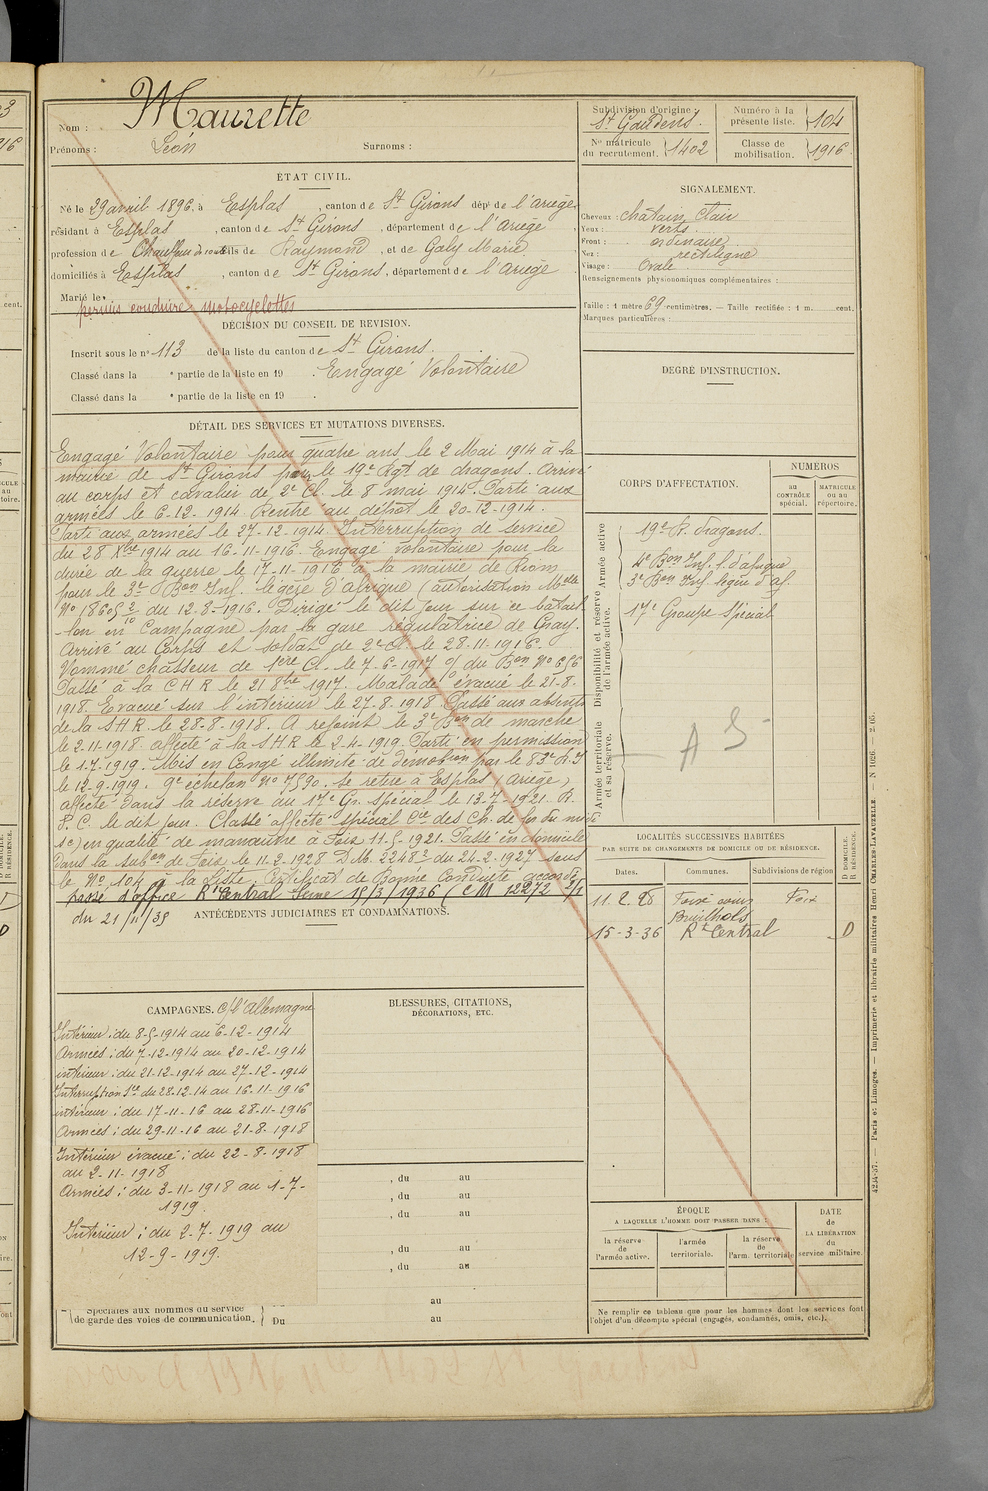 Nom : Maurette
Prénoms : Léon Surnoms :
ÉTAT CIVIL.
Né le 29 avril 1896, à Esplas, canton de St Girons dépt de l'Ariège,
résidant à Esplas, canton de St Girons, département de l'Ariège,
profession de Chauffeur de route fils de Raymond, et de Galy Marie
domiciliés à Esplas, canton de St Girons, département de l'Ariège
Marié le
permis conduire motocyclettes
DÉCISION DU CONSEIL DE REVISION.
Inscrit sous le n° 113 de la liste du canton de St Girons.
Classé dans la e partie de la liste en 19 . Engagé Volontaire
Classé dans la e partie de la liste en 19 .
DÉTAIL DES SERVICES ET MUTATIONS DIVERSES.
Engagé Volontaire pour quatre ans le 2 Mai 1914 à la
mairie de St Girons pour le 19e Rgt de dragons. Arrivé
au corps et cavalier de 2e Cl. le 8 mai 1914. Parti aux
armées le 6-12-1914. Rentré au dépôt le 20-12-1914.
Parti aux armées le 27-12-1914. Interruption de service
du 28 Xbre 1914 au 16-11-1916. Engagé volontaire pour la
durée de la guerre le 17-11-1916 à la mairie de Riom
pour le 3e Bon Inf. légère d'afrique (autorisation Melle
No 18605 2/10 du 12-8-1916. Dirigé le dit jour sur ce batail
-lon en Campagne par la gare régulatrice de Gray.
Arrivé au Corps et soldat de 2e cl. le 28-11-1916.
Nommé chasseur de 1ere Cl. le 7-6-1917 o/ du Bon No 656
Passé à la C H R le 21 8bre 1917. Malade évacué le 21-8-
1918. Evacué sur l'intérieur le 27-8-1918. Passé aux absents
de la S H R le 28-8-1918. A rejoint le 3e Bon de marche
le 2-11-1918. affecté à la S H R le 2-4-1919. Parti en permission
le 1-7-1919. Mis en Congé illimité de démobion par le 83e R.I
le 12-9-1919. 9e échelon No 7590. se retire à Esplas (Ariège)
affecté dans la réserve au 17e Gr. spécial le 13-7-1921. R.
P. C. le dit jour. Classé affecté spécial Cie des Ch. de fer du midi
en qualité de manœuvre à Foix 11-5-1921. Passé en domicile
dans la subon de Foix le 11-2-1928 D.M. 2248 du 24-2-1927 sous
le No 104 à la Liste. Certificat de Bonne Conduite accordé
passé d'office Rt Central Seine 15/3/1936 (CM 12272 2/1
du 21/11/35
ANTÉCÉDENTS JUDICIAIRES ET CONDAMNATIONS.
CAMPAGNES. C/ l'Allemagne
Intérieur : du 8-5-1914 au 6-12-1914
Armées : du 7-12-1914 au 20-12-1914
intérieur : du 21-12-1914 au 27-12-1914
Interruption Sce du 28-12-14 au 16-11-1916
intérieur : du 17-11-16 au 28-11-1916
Armées : du 29-11-16 au 21-8-1918
Intérieur évacué : du 22-8-1918
au 2-11-1918
Armées : du 3-11-1918 au 1-7-
1919.
Intérieur : du 2-7-1919 au
12-9-1919.
Spéciales aux hommes du service
de garde des voies de communication. Du
BLESSURES, CITATIONS,
DÉCORATIONS, ETC.
, du au
, du au
, du au
, du au
, du au
au
au
Subdivision d'origine : St Gaudens.
Nº matricule du recrutement. 1402
Numéro à la présente liste. 104
Classe de mobilisation. 1916
SIGNALEMENT.
Cheveux : châtain clair
Yeux : verts
Front : ordinaire
Nez : rectiligne
Visage : Ovale
Renseignements physionomiques complémentaires :
Taille : 1 mètre 69 centimètres. — Taille rectifiée : 1 m. cent.
Marques particulières :
DEGRÉ D'INSTRUCTION.
CORPS D'AFFECTATION.
NUMÉROS
au CONTRÔLE spécial.
MATRICULE ou au répertoire.
Armée active
19e R. dragons.
4e Bon Inf. l. d'afrique
3e Bon Inf légère d'af.
Disponibilité et réserve de l'armée active.
17e Groupe Spécial
Armée territoriale et sa réserve.
A S
LOCALITÉS SUCCESSIVES HABITÉES
PAR SUITE DE CHANGEMENTS DE DOMICILE OU DE RÉSIDENCE.
D. DOMICILE.
R. RÉSIDENCE.
Dates. Communes. Subdivisions de région
11.2.28 Foix Foix
15-3-36 Rt Central D
ÉPOQUE
A LAQUELLE L'HOMME DOIT PASSER DANS :
la réserve de l'armée active.
l'armée territoriale.
la réserve de l'arm. territoriale
DATE
de
LA LIBÉRATION
du
service militaire.
Ne remplir ce tableau que pour les hommes dont les services font
l'objet d'un décompte spécial (engagés, condamnés, omis, etc.).
4234-37. — Paris et Limoges. — Imprimerie et librairie militaires Henri CHARLES-LAVAUZELLE. — N 1026. — 2-05.